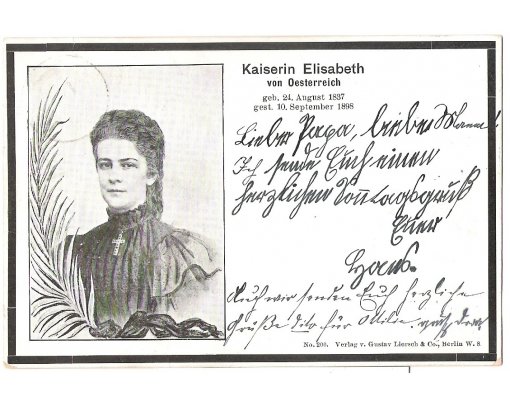 Kaiserin Elisabeth
von Oesterreich
geb. 24. August 1837
gest. 10. September 1898
Lieber Papa, liebe Mama!
Ich sende Euch einen
herzlichen Sonntagsgruß
Euer
Hans.
Auch wir senden Euch herzliche
Grüße dito für Ottilie.
No. 200. Verlag v. Gustav Liersch & Co., Berlin W. 8